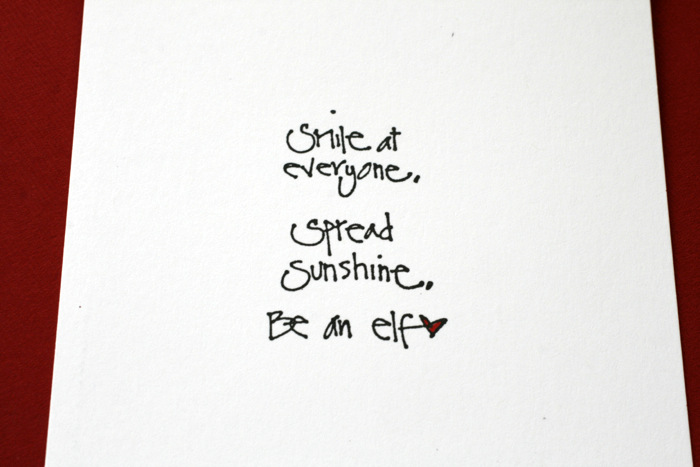 Smile at
everyone.
Spread
Sunshine.
Be an elf